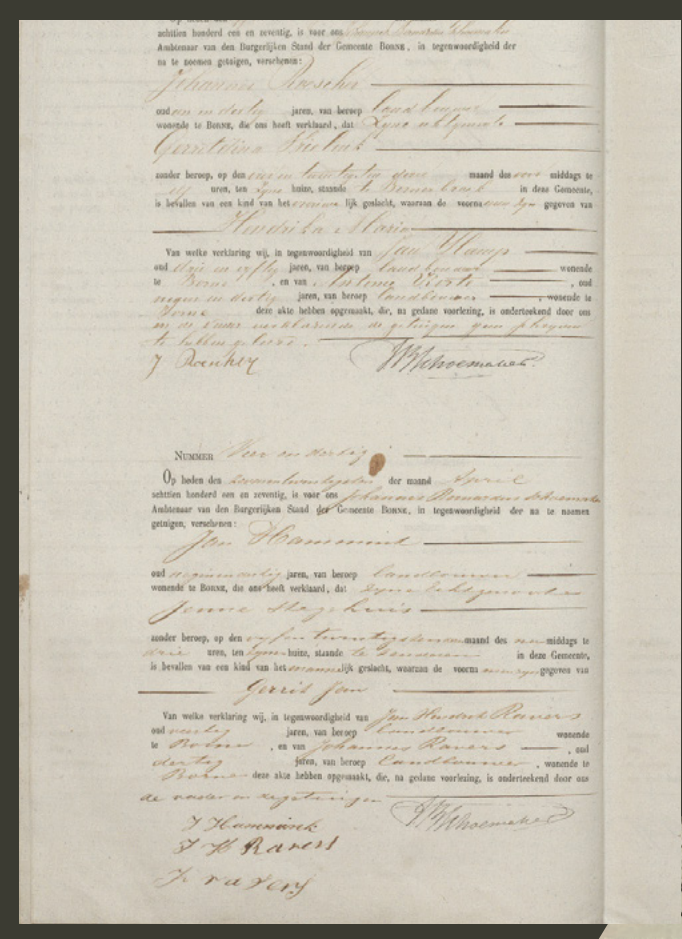 achttien honderd een en zeventig, is voor ons
Ambtenaar van den Burgerlijken Stand der Gemeente BORNE, in tegenwoordigheid der
na te noemen getuigen, verschenen:
Johannes
oud een en dertig jaren, van beroep landbouwer
wonende te BORNE, die ons heeft verklaard, dat zyne echtgenoote
Gerritdina
zonder beroep, op den maand des voor middags te
elf uren, ten zyne huize, staande te Bornerbroek in deze Gemeente,
is bevallen van een kind van het lijk geslacht, waaraan de voorna gegeven van
Hendrika Maria
Van welke verklaring wij, in tegenwoordigheid van Jan
oud drie en vyftig jaren, van beroep landbouwer wonende
te Borne, en van , oud
negen en dertig jaren, van beroep landbouwer, wonende te
Borne deze akte hebben opgemaakt, die, na gedane voorlezing, is onderteekend door ons
en de vader verklarende de getuigen geen schryven
te hebben geleerd.
JBSchoemaker
NUMMER Vier en dertig
Op heden den zevenentwintigsten der maand April
achttien honderd een en zeventig, is voor ons Johannes Bernardus Schoemaker
Ambtenaar van den Burgerlijken Stand der Gemeente BORNE, in tegenwoordigheid der na te noemen
getuigen, verschenen:
Jan Hammink
oud jaren, van beroep landbouwer
wonende te BORNE, die ons heeft verklaard, dat zyne echtgenoote
Jenne Stegehuis
zonder beroep, op den vyfentwintigsten dezer maand des na middags te
drie uren, ten zynen huize, staande te Senderen in deze Gemeente,
is bevallen van een kind van het mannelijk geslacht, waaraan de voorna gegeven van
Gerrit Jan
Van welke verklaring wij, in tegenwoordigheid van Jan Hendrik Ravers
oud veertig jaren, van beroep landbouwer wonende
te Borne, en van Johannes Ravers, oud
dertig jaren, van beroep landbouwer, wonende te
Borne deze akte hebben opgemaakt, die, na gedane voorlezing, is onderteekend door ons
de vader en de getuigen
J Hammink
JBSchoemaker
J H Ravers
J ravers